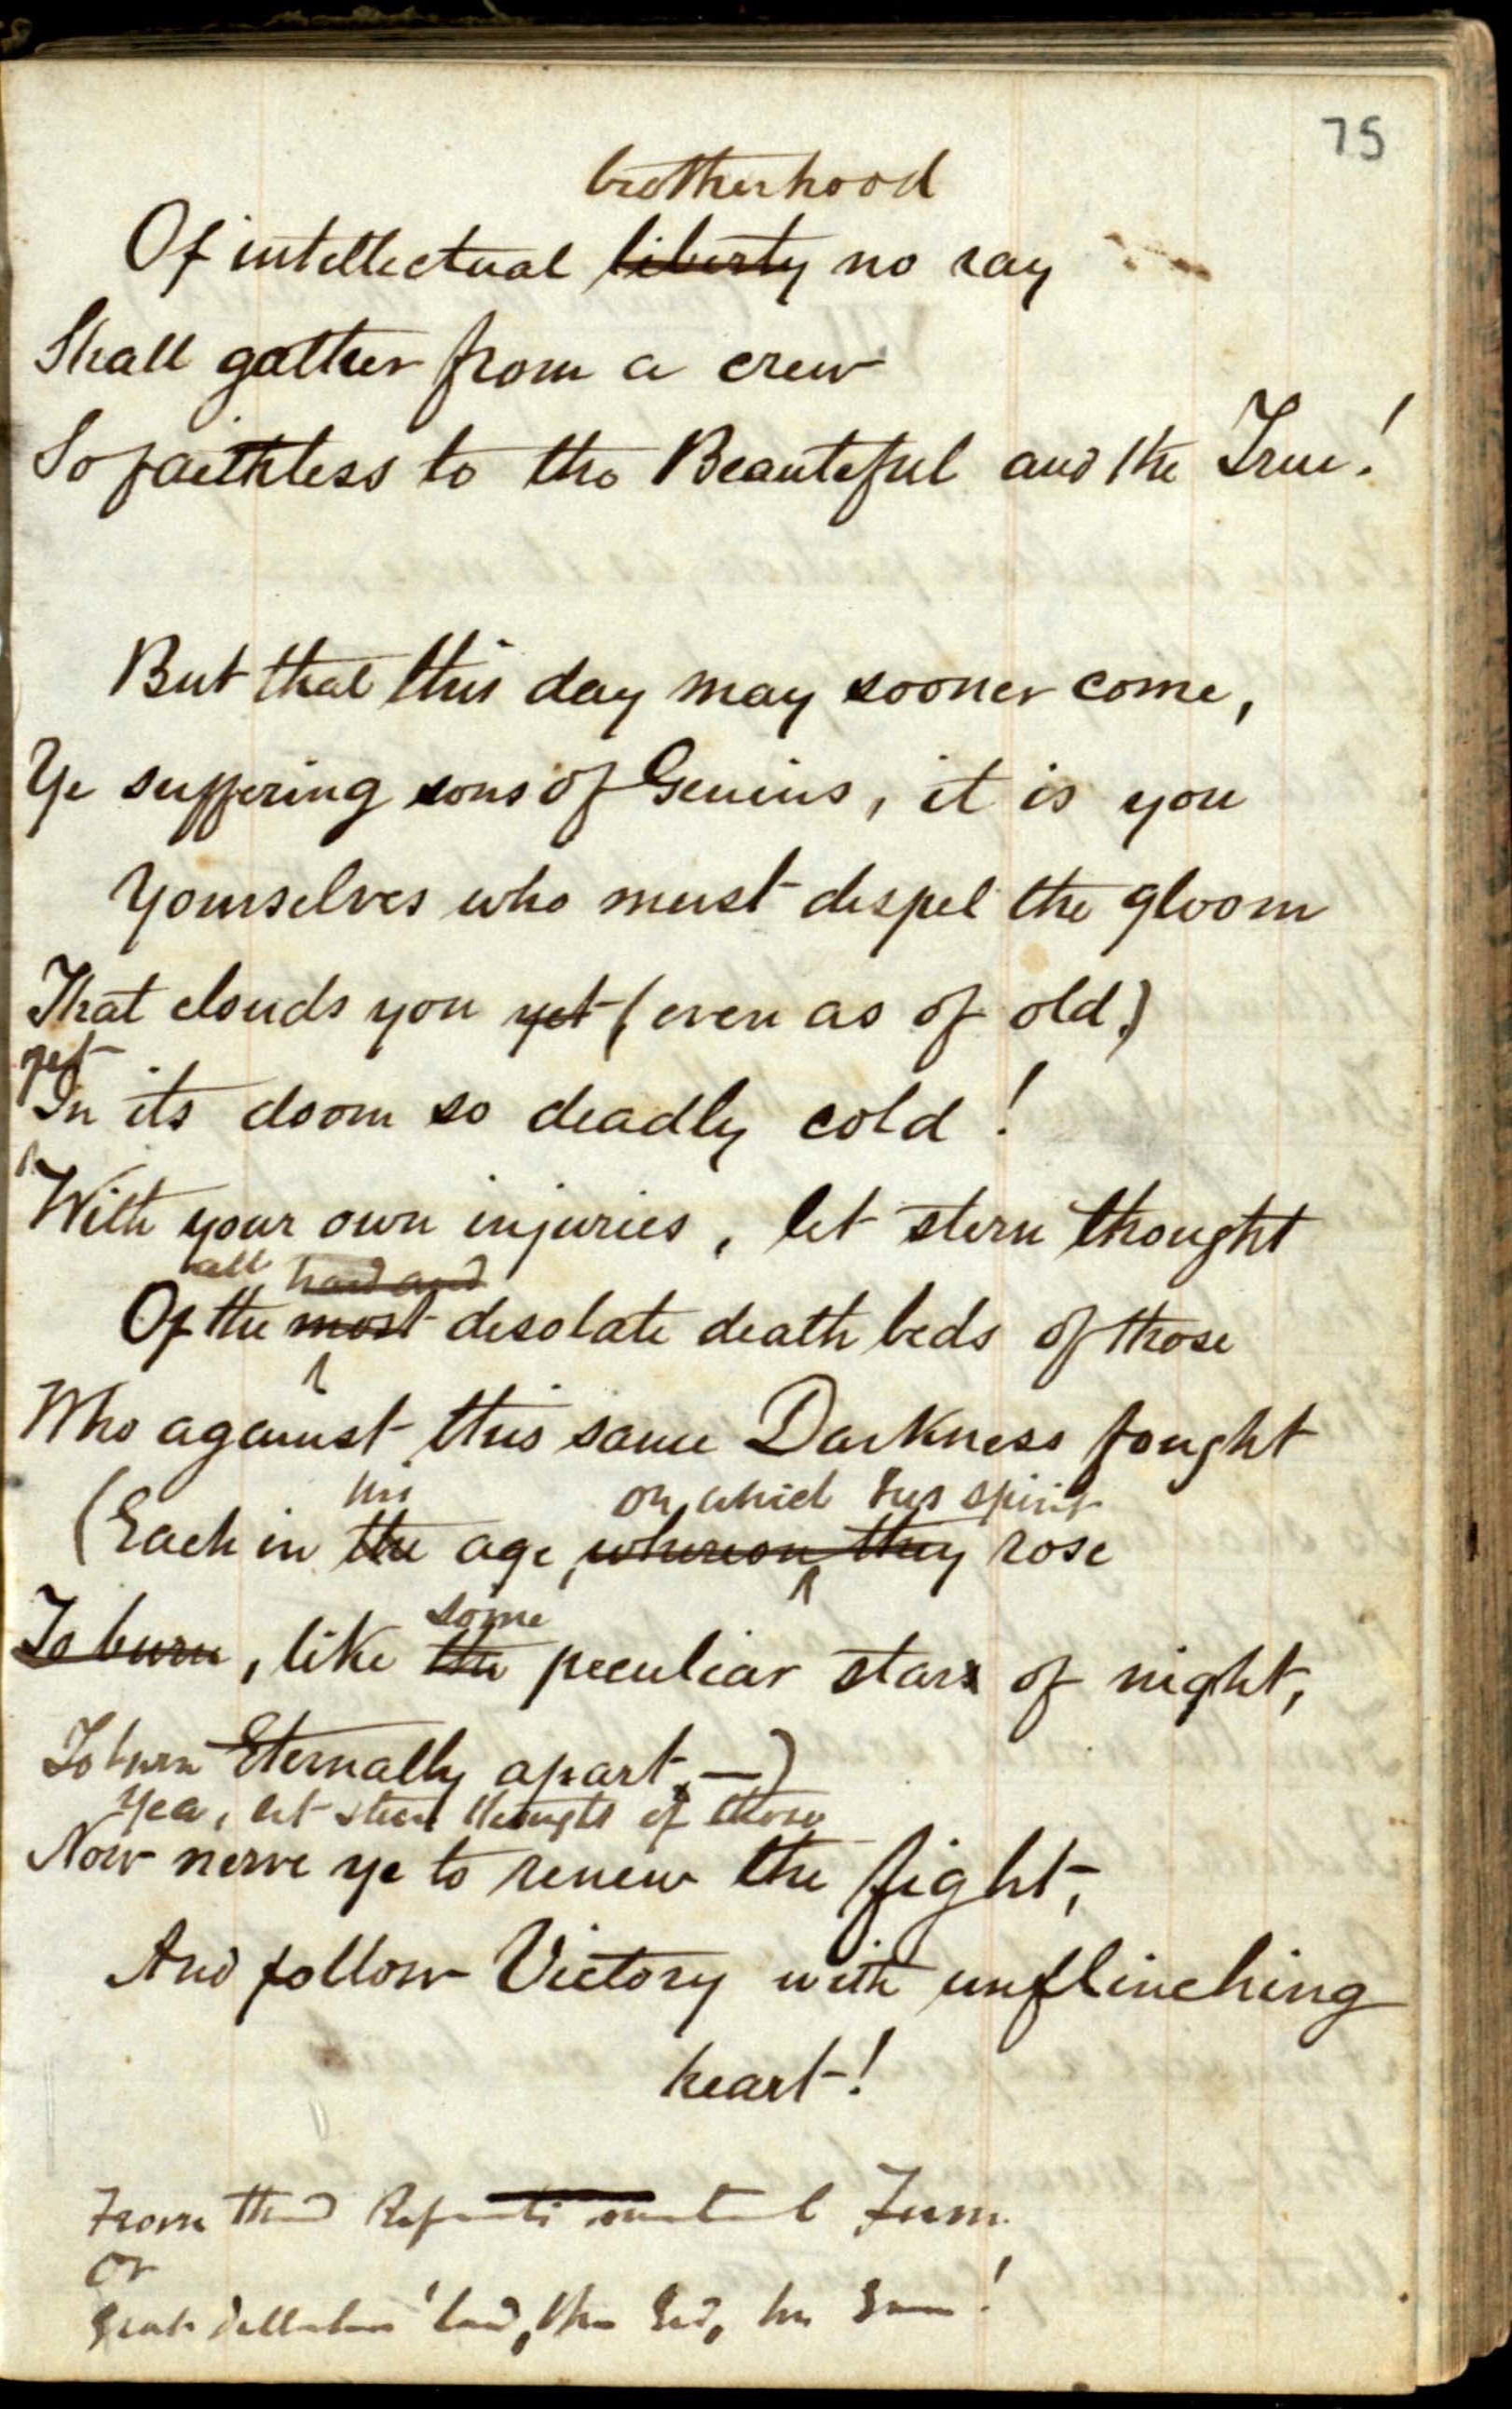 75
brotherhood
Of intellectual liberty no ray
Shall gather from a crew
So faithless to the Beautiful and the True!
But that this day may sooner come,
Ye suffering sons of Genius, it is you
Yourselves who must dispel the gloom
That clouds you yet (even as of old)
yet
In its doom so deadly cold!
With your own injuries, let stern thought
all hard and
Of the most desolate death beds of those
Who against this same Darkness fought
his on which his spirit
(Each in the age, whereon they rose
some
To burn, like the peculiar stars of night,
To burn Eternally apart,—)
Yea, let stern thoughts of those
Now nerve ye to renew the fight,
And follow Victory with unflinching
heart!
From
or